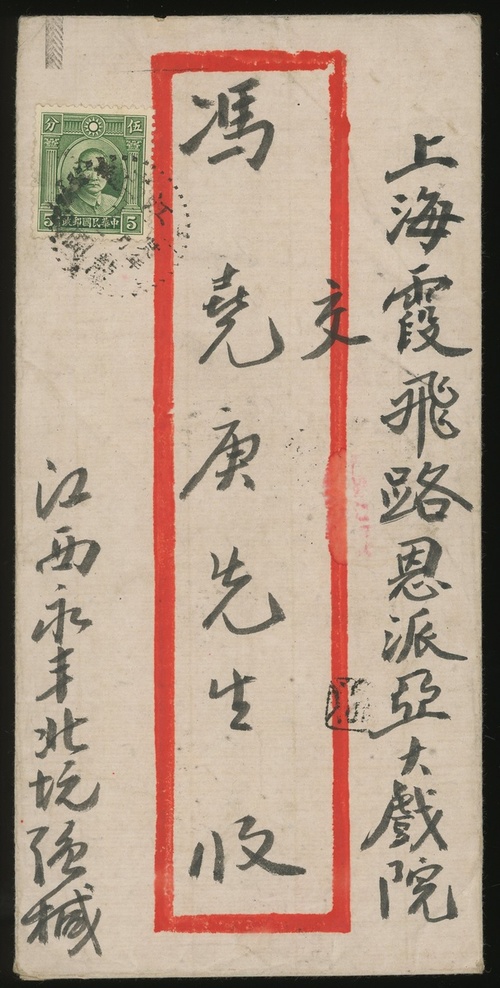 上海霞飛路恩派亞大戲院
交
馮堯庚先生收
江西永丰北坑強椷
伍分
5 中華民國郵政 5